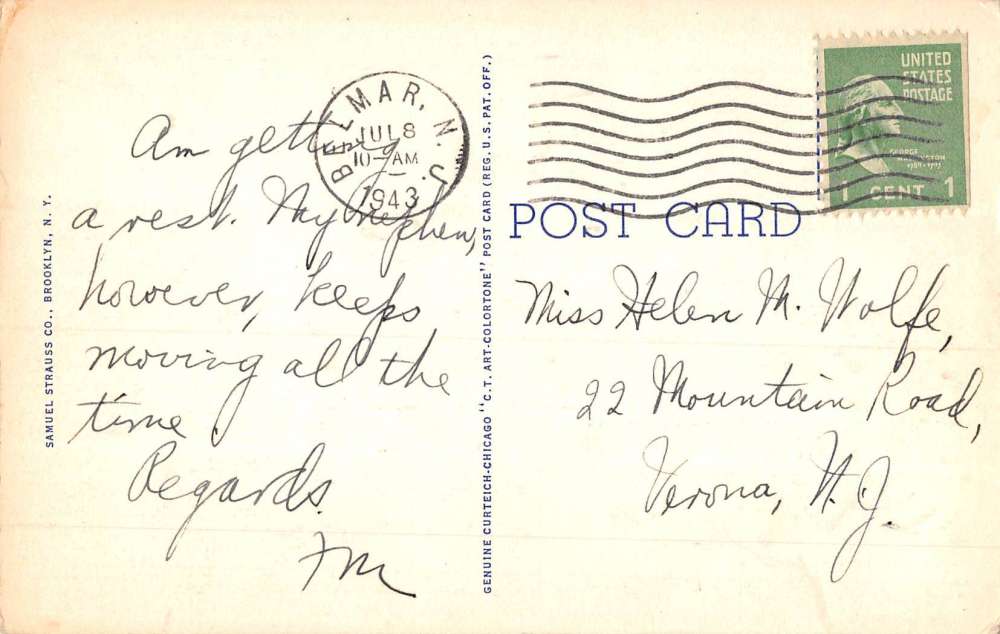 Am getting
a rest. My nephew,
however, keeps
moving all the
time.
Regards.
BELMAR, N. J.
JUL 8
10-AM
1943
SAMUEL STRAUSS CO., BROOKLYN, N. Y.
GENUINE CURTEICH-CHICAGO "C.T. ART-COLORTONE" POST CARD (REG. U.S. PAT. OFF.)
UNITED
STATES
POSTAGE
GEORGE
WASHINGTON
1789-1797
1 CENT 1
POST CARD
Miss Helen M. Wolfe,
22 Mountain Road,
Verona, N.J.